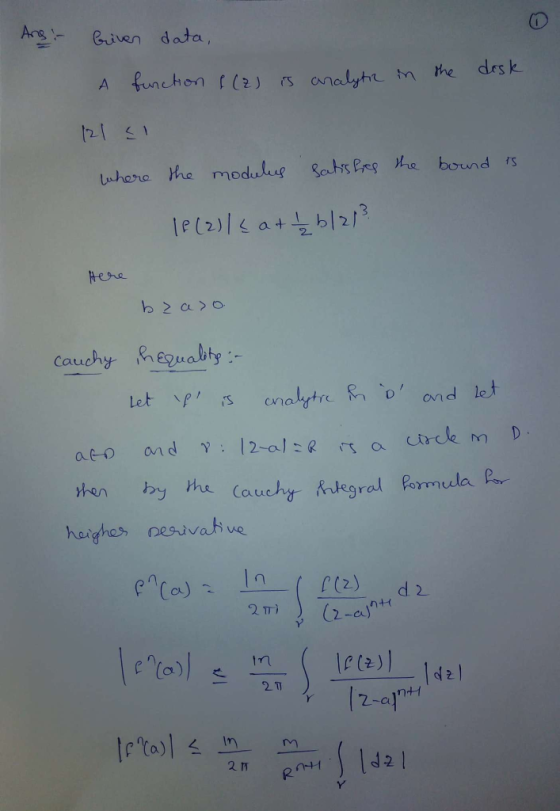 ①
Ans :- Given data,
A function f(z) is analytic in the desk
|z| ≤ 1
where the modulus satisfies the bound is
|f(z)| ≤ a + 1/2 b|z|³
Here
b ≥ a > 0
Cauchy inequality :-
Let 'f' is analytic in 'D' and Let
a∈D and γ : |z-a| = R is a circle in D.
then by the Cauchy integral formula for
heigher Derivative
fⁿ(a) = |n / 2πi ∫γ f(z) / (z-a)ⁿ⁺¹ dz
|fⁿ(a)| ≤ |n / 2π ∫γ |f(z)| / |z-a|ⁿ⁺¹ |dz|
|fⁿ(a)| ≤ |n / 2π m / Rⁿ⁺¹ ∫γ |dz|